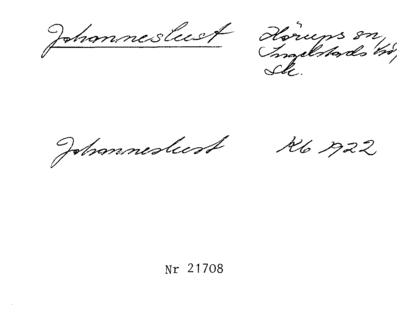 Johanneslust Hörups sn,
Ingelstads hd,
Sk.
Johanneslust Kb 1922
Nr 21708